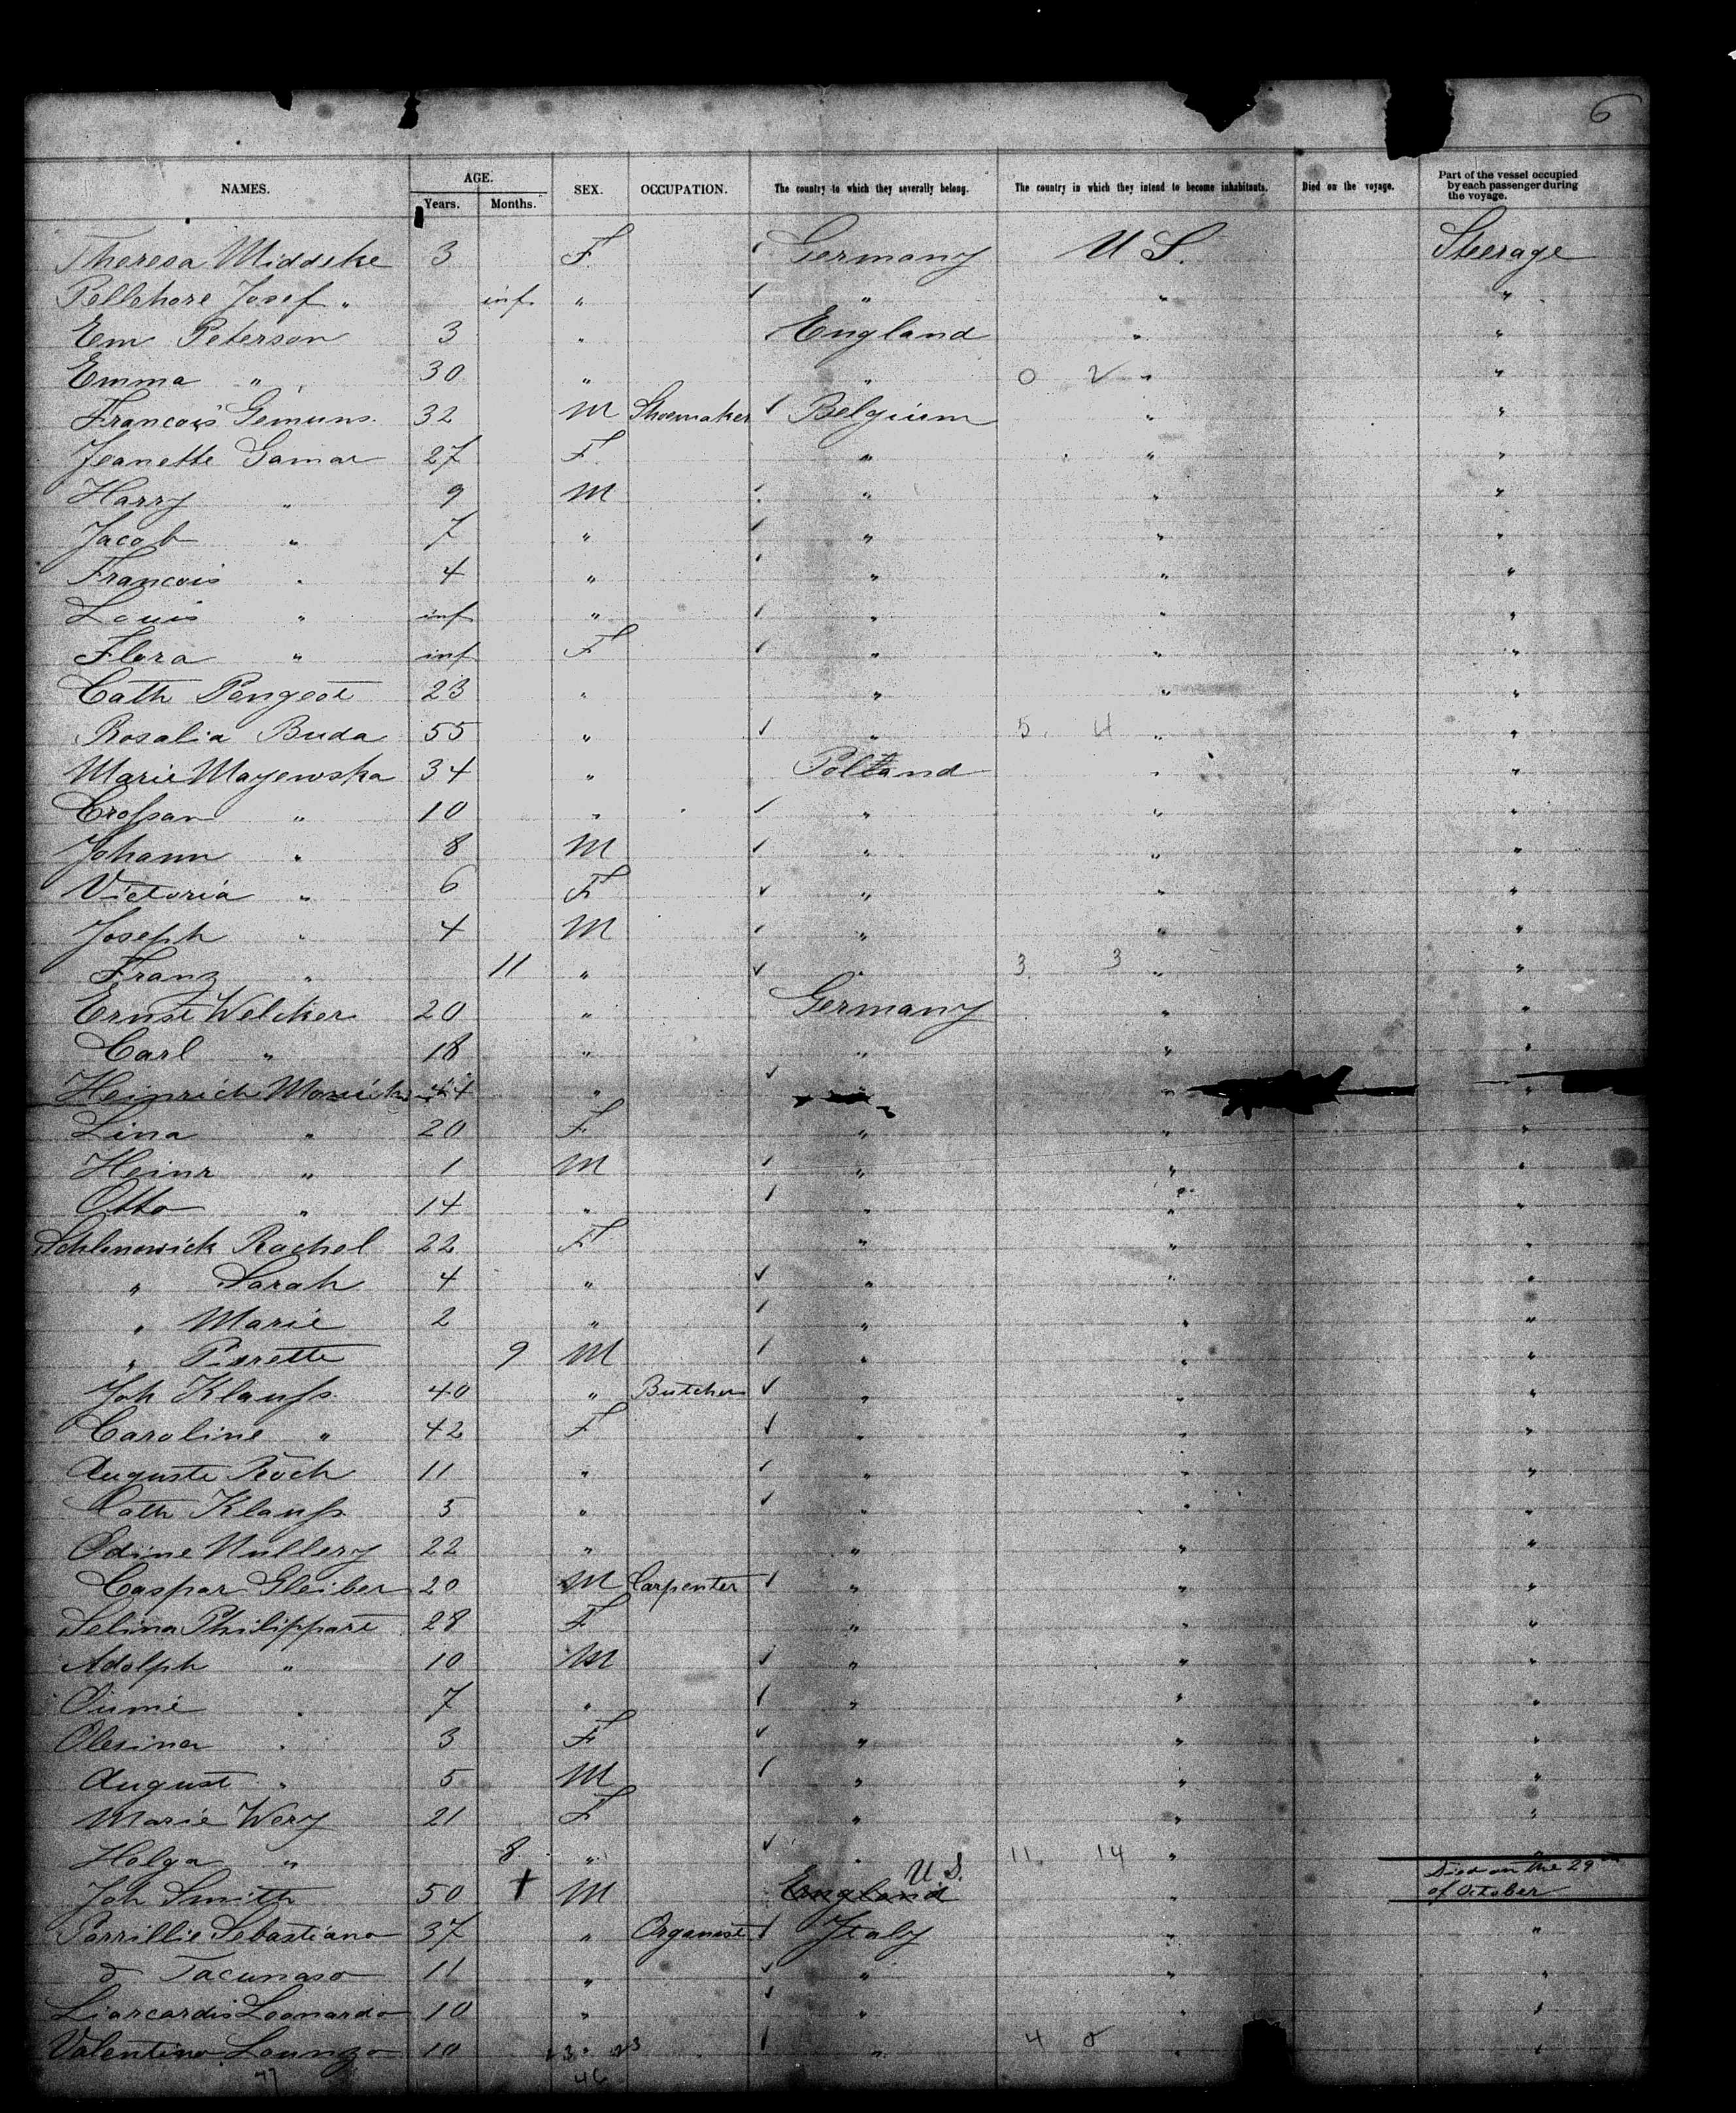 6
NAMES. AGE. Years. Months. SEX. OCCUPATION. The country to which they severally belong. The country in which they intend to become inhabitants. Died on the voyage. Part of the vessel occupied by each passenger during the voyage.
Theresa Middeke 3 F Germany U S. Steerage
Josef " inf. " " " "
Em Peterson 3 " England " "
Emma " 30 " " 0 2 " "
Francois Gemuns. 32 M Shoemaker Belgium " "
Jeanette Gamar 27 F " " "
Harry " 9 M " " "
Jacob " 7 " " " "
Francois " 4 " " " "
Louis " inf " " " "
Flora " inf F " " "
Cath Pengeot 23 " " " "
Rosalia Buda 55 " " 5. 4 " "
Marie Mayewska 34 " Poland " "
" 10 " " " "
Johann " 8 M " " "
Victoria " 6 F " " "
Joseph " 4 M " " "
Franz " 11 " " 3. 3 " "
Ernst Welcker 20 " Germany " "
Carl " 18 " " " "
Heinrich 44 " " " "
Lina " 20 F " " "
Heinr " 1 M " " "
Otto " 14 " " " "
Schlenowick Rachel 22 F " " "
" Sarah 4 " " " "
" Marie 2 " " " "
" Pierette 9 M " " "
Joh Klauss 40 " Butcher " " "
Caroline " 42 F " " "
Auguste Koch 11 " " " "
Cath Klauss 5 " " " "
Odine Nullery 22 " " " "
Caspar Gleiber 20 M Carpenter " " "
Selina Philippart 28 F " " "
Adolph " 10 M " " "
" 7 " " " "
Olesina " 3 F " " "
August " 5 M " " "
Marie Wery 21 F " " "
Helga " 8 " " 11. 14 " "
Joh Smith 50 + M England U.S. " Died on the 29th of October
Parrillie Sebastiano 37 " Organist Italy " "
d Tacunaso 11 " " " "
Leonardo 10 " " " "
Valentino Lounzo 10 " 23 23 " 4 0 " "
46